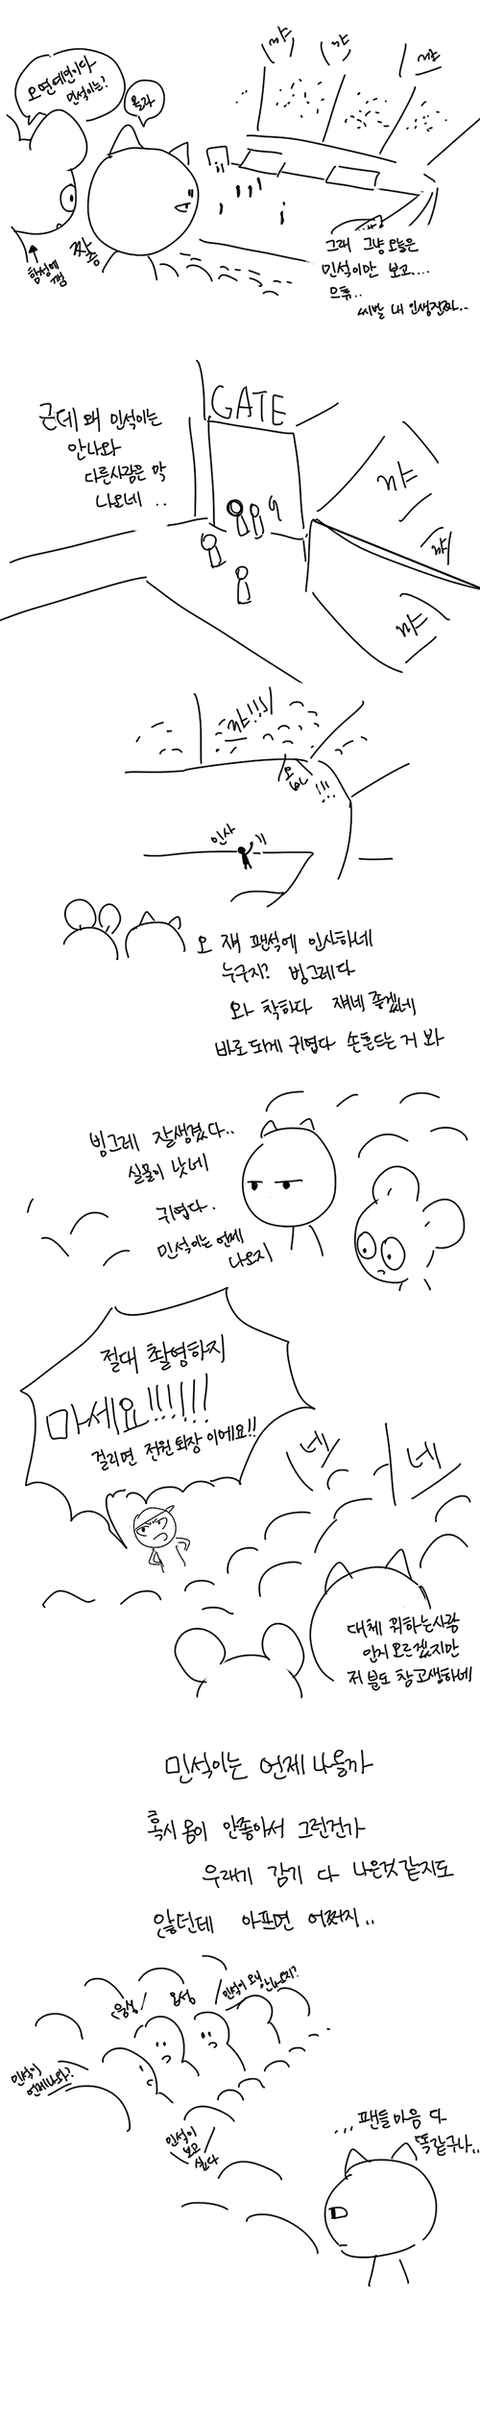 오 연예인이다
민석이는?
몰라
꺄
꺄
꺄
함성에
껌
짜증
그래 그냥 오늘은
민석이만 보고....
으휴..
씨발 내 인생진짜..
근데 왜 민석이는
안나와
다른사람은 막
나오네 ..
GATE
꺄
꺄
꺄
꺄!!!
!!!
인사
오 쟤 팬석에 인사하네
누구지? 빙그레다
와 착하다 쟤네 좋겠네
바로 되게 귀엽다 손흔드는 거 봐
빙그레 잘생겼다..
실물이 낫네
귀엽다.
민석이는 언제
나오지
절대 촬영하지
마세요!!!!!!
걸리면 전원 퇴장 이에요!!
네
네
대체 뭐하는사람
인지 모르겠지만
저 분도 참 고생하네
민석이는 언제 나올까
혹시 몸이 안좋아서 그런건가
우래기 감기 다 나은것 같지도
않던데 아프면 어쩌지..
웅성
웅성
민석이
언제나와?
민석이
보고
싶다
... 팬들 마음 다
똑같구나..